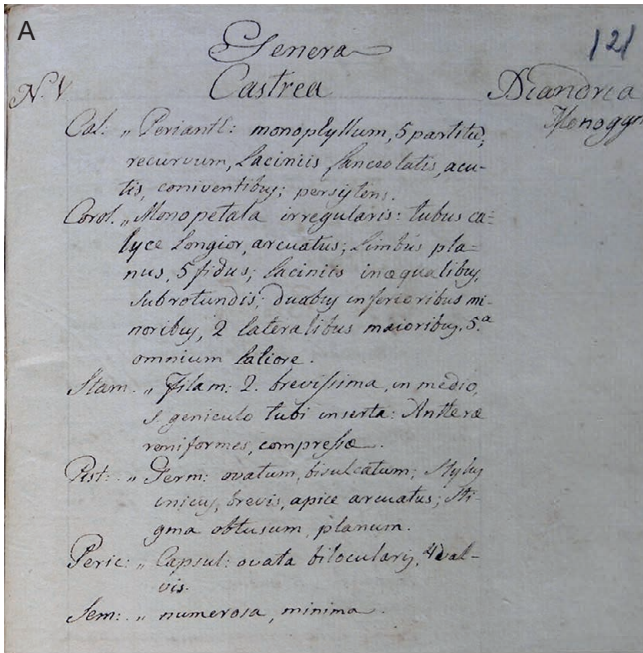 A
121
Genera
N. V Castrea Diandria
Monogyn
Cal: „ Perianth: monophyllum, 5 partitũ,
recurvum, Laciniis lanceolatis, acu-
tis, coniventibus; persistens.
Corol. „ Monopetala irregularis: tubus ca-
lyce Longior, arcuatus; Limbus pla-
nus, 5 fidus; Laciniis inæqualibus,
subrotundis; duabus inferioribus mi-
noribus, 2 lateralibus maioribus. 5.ª
omnium latiore.
Stam. „ Filam: 2. brevissima, in medio,
s. geniculo tubi inserta: Antheræ
reniformes, compressæ.
Pist: „ Germ: ovatum, bisulcatum; Stylus
unicus, brevis, apice arcuatus; Sti-
gma obtusum, planum.
Peric: „ Capsul: ovata bilocularis, 4 val-
vis.
Sem: „ numerosa, minima.